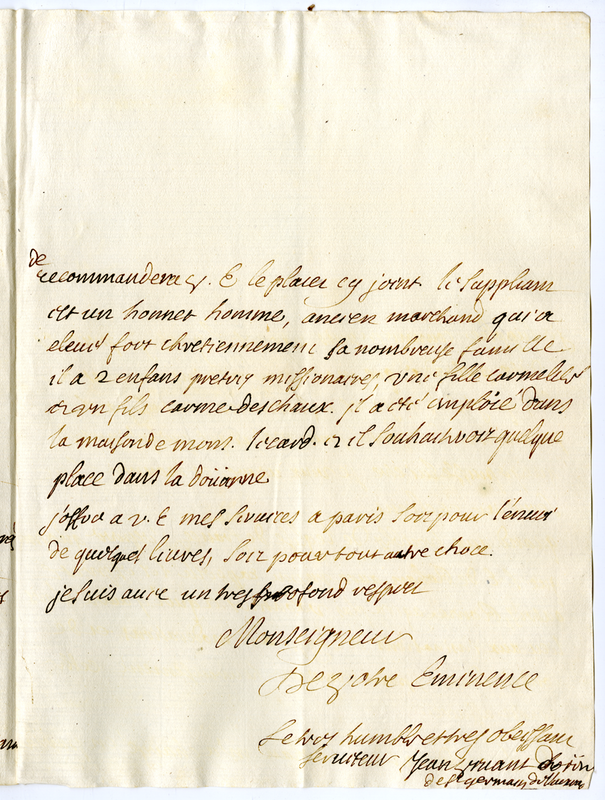 de
recommander a v. E le placet cy joint le suppliant
est un honnet homme, ancien marchand qui a
elevé fort chretiennement sa nombreuse famille
il a 2 enfans pretres missionaires, une fille carmelite
et un fils carme deschaux. il a eté emploié dans
la maison de mons. et il souhaitteroit quelque
place dans la doüanne
j'offre a v. E mes services a paris soit pour l'envoi
de quelques livres, soit pour tout autre chose.
je suis avec un tres profond respect
Monseigneur
De votre Eminence
Le tres humble et tres obeissant
serviteur Jean
de st germain